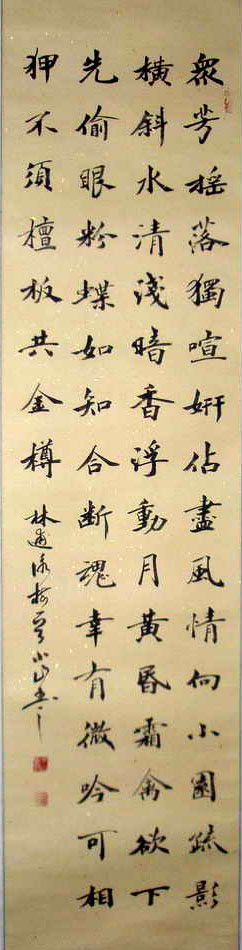 衆芳摇落獨喧妍佔盡風情向小園疏影
横斜水清淺暗香浮動月黄昏霜禽欲下
先偷眼粉蝶如知合断魂幸有微吟可相
狎不須檀板共金樽 林逋詠梅